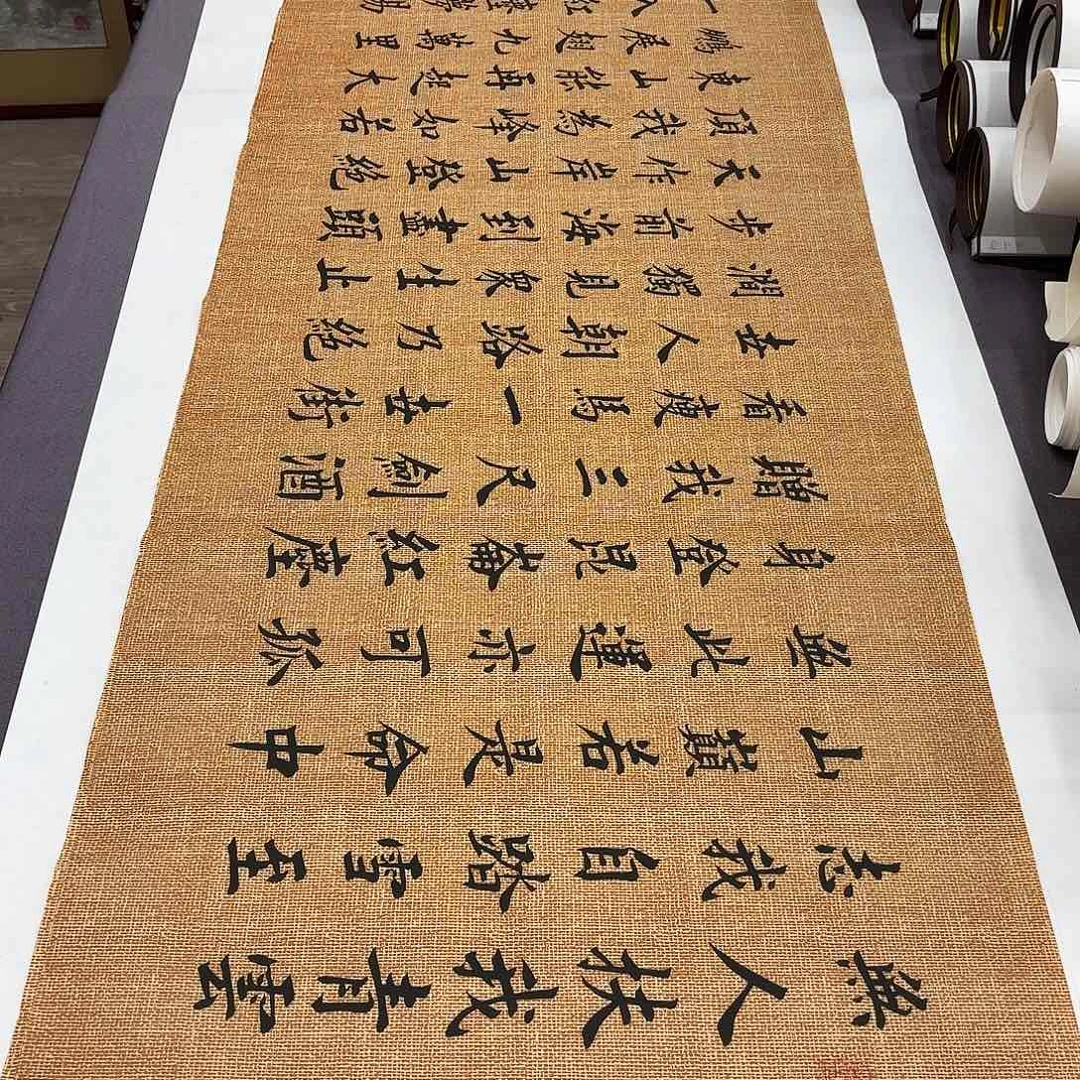 無人扶我青雲
志我自踏雪至
山巔若是命中
無此運亦可孤
身登昆崙紅塵
贈我三尺劍酒
看瘦馬一世街
世人朝路乃絕
澗獨見眾生止
步前海到盡頭
天作岸山登絕
頂我為峰如若
東山能再起大
鵬展翅九萬里
一入紅塵